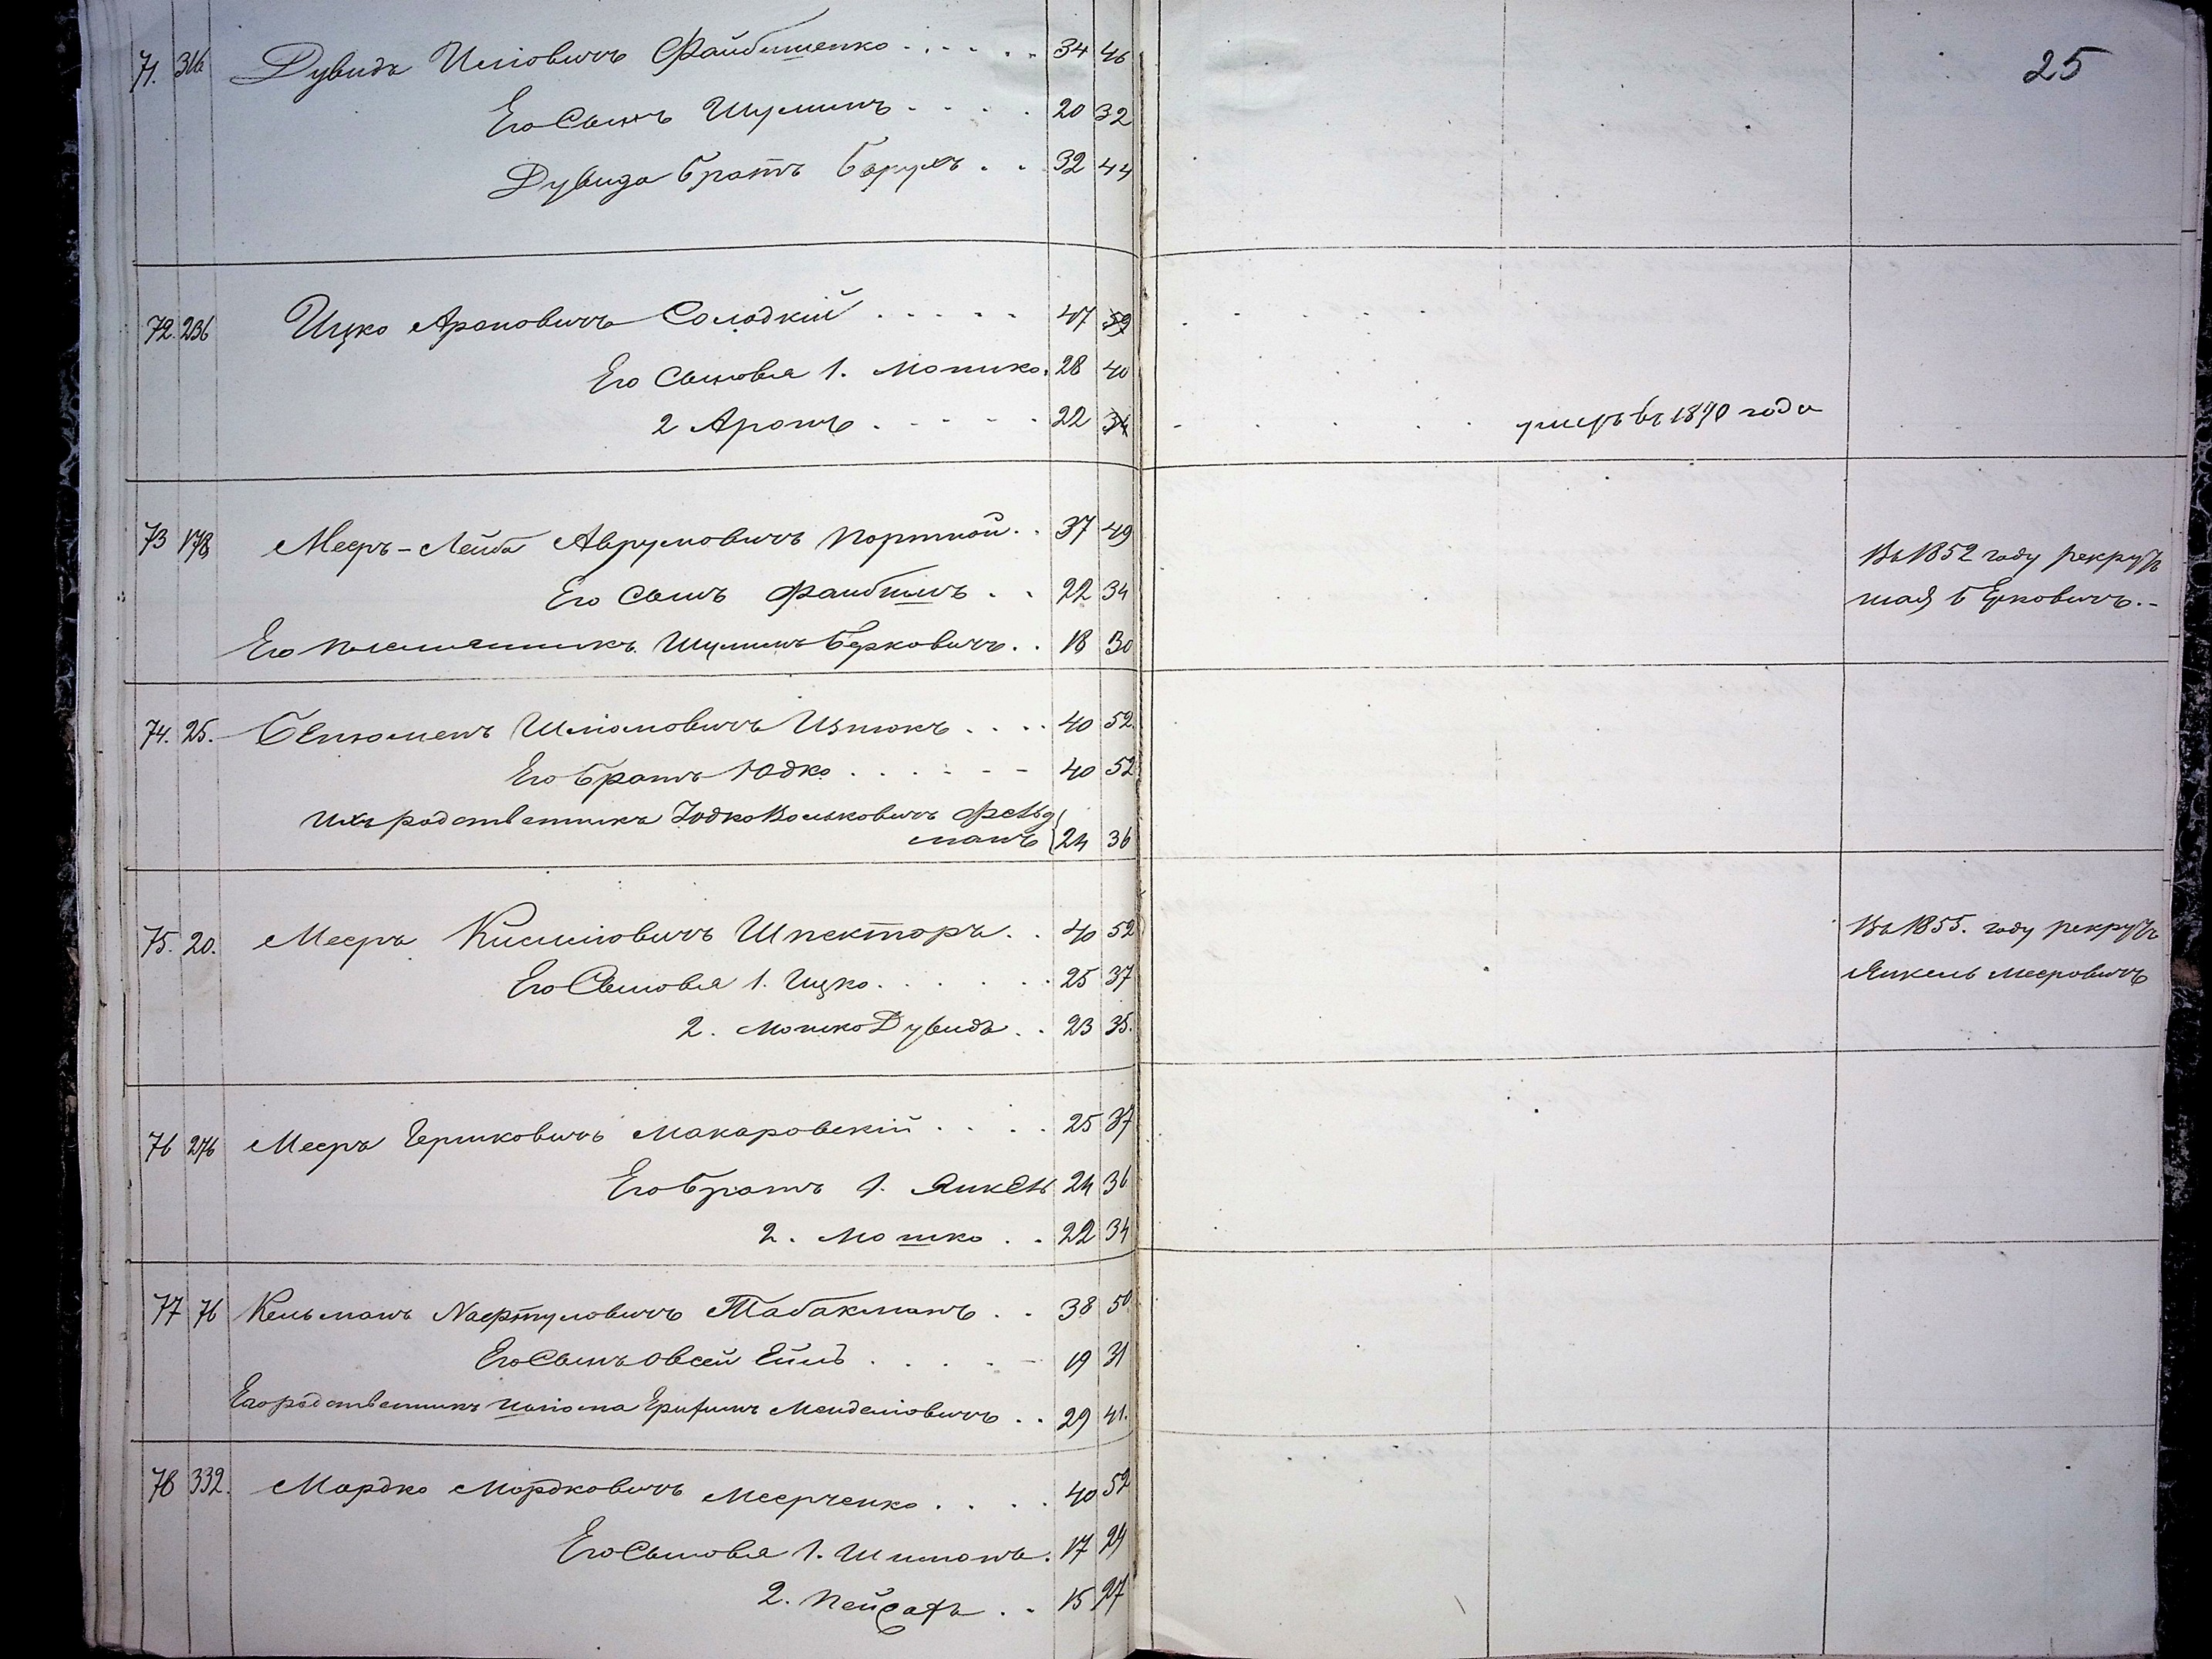 25
71. 316 Дувидъ Иліовичъ Файбишенко 34 46
Его Сынъ Шулимъ 20 32
Дувида братъ Барухъ 32 44
72. 236 Ицко Ароновичъ Солодкій 47 59
Его Сыновья 1. Мошко 28 40
2 Аронъ 22 34 умеръ въ 1870 года
73 178 Мееръ-Лейба Аврумовичъ Портной 37 49 Въ 1852 году рекрутъ
Его Сынъ Файбишъ 22 34 Берковичъ.-
Его племянникъ Шулимъ Берковичъ 18 30
74. 25. Бенюменъ Шліомовичъ 40 52
Его братъ Юдко 40 52
Ихъ родственникъ Юдко Вольковичъ Фельд
манъ 24 36
75. 20. Мееръ Кисиліовичъ Шпекторъ 40 52 Въ 1855. году рекрутъ
Его Сыновья 1. Ицко 25 37 Янкель Мееровичъ
2. Мошко Дувидъ 23 35.
76 276 Мееръ Гершковичъ Макаровскій 25 37
Его братъ 1. Янкель 24 36
2. Мошко 22 34
77 76 Кельманъ Нафтуловичъ Табакманъ 38 50
Его Сынъ Овсей 19 31
Его родственникъ Шліома Менделіовичъ 29 41.
78 332. Мордко Мордковичъ Меерченко 40 52
Его Сыновья 1. Шимонъ 17 29
2. Пейсахъ 15 27